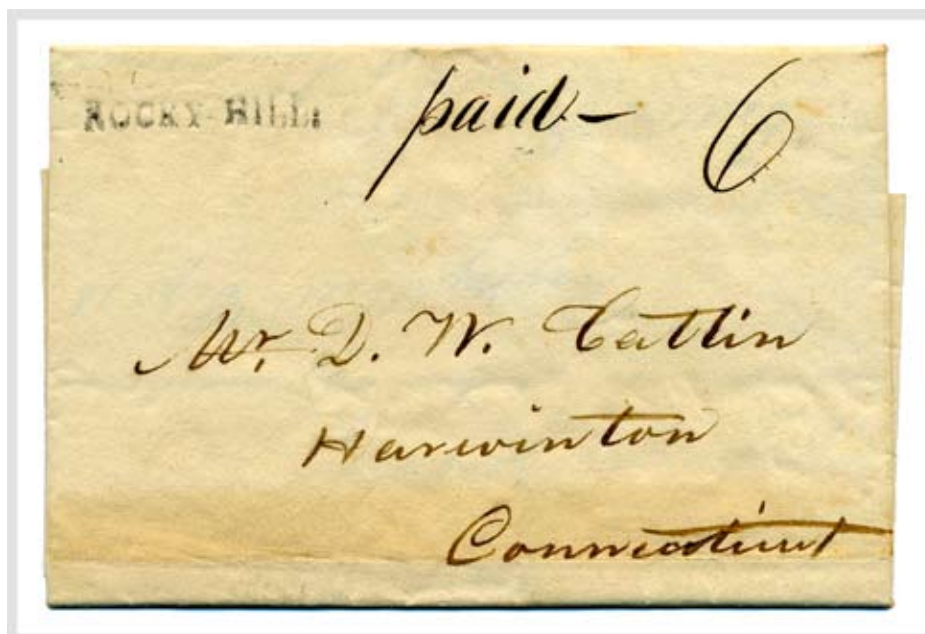 ROCKY HILL
paid - 6
Mr. D. W. Catlin
Harwinton
Connecticut